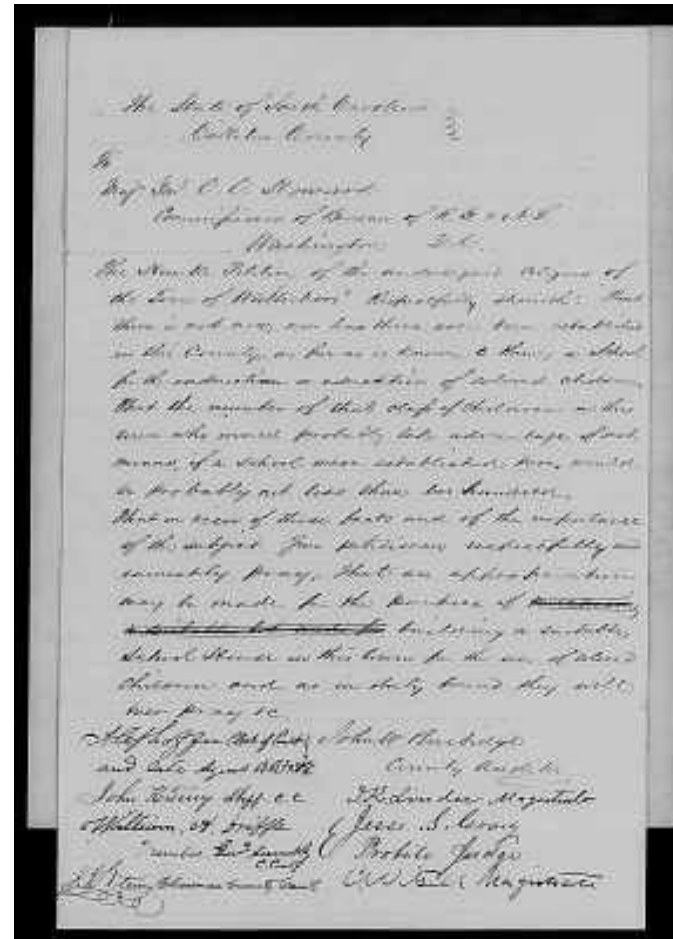 The State of South Carolina
Colleton County
To
Maj Gen' O. O. Howard
Commissioner of Bureau of R. F. & A. L.
Washington D.C.
The Humble Petition of the undersigned citizens of
the Town of Walterboro' Respectfully sheweth: That
there is not now, nor has there ever been established
in this County, as far as is known to them, a School
for the education of colored children
That the number of that class of children in this
town who would probably take advantage of such
means, if a school were established here, would
be probably not less than two hundred.
That in view of these facts and of the importance
of the subject Your petitioners respectfully and
earnestly pray, that an appropriation
may be made for the purpose of
building a suitable
School House in this town for the use of colored
children and as in duty bound they will
ever pray &c
John W Burbidge
and late Agent
County Auditor
John K Terry Shff C.C.
Magistrate
William A
Jesse S.
Probate Judge
Magistrate